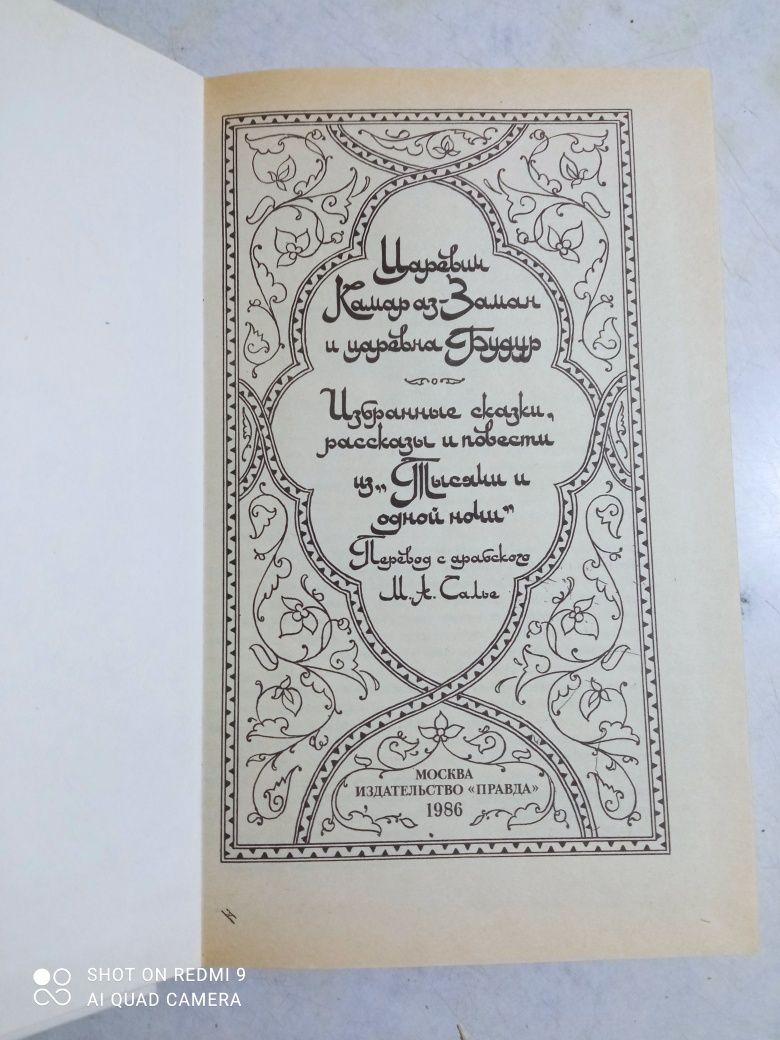 Царевич
Камар аз-Заман
и царевна Будур
Избранные сказки,
рассказы и повести
из „Тысячи и
одной ночи"
Перевод с арабского
М. А. Салье
МОСКВА
ИЗДАТЕЛЬСТВО «ПРАВДА»
1986
SHOT ON REDMI 9
AI QUAD CAMERA